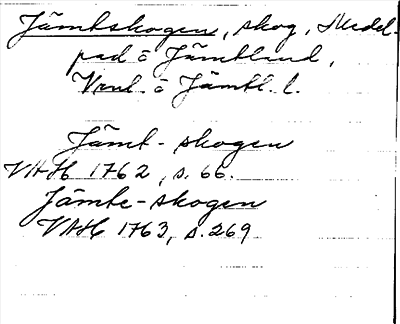 Jämtskogen, skog, Medel-
pad o Jämtland,
Vnl. o Jämtl. l.
Jämt-skogen
VAH 1762, s. 66.
Jämte-skogen
VAH 1763, s. 269